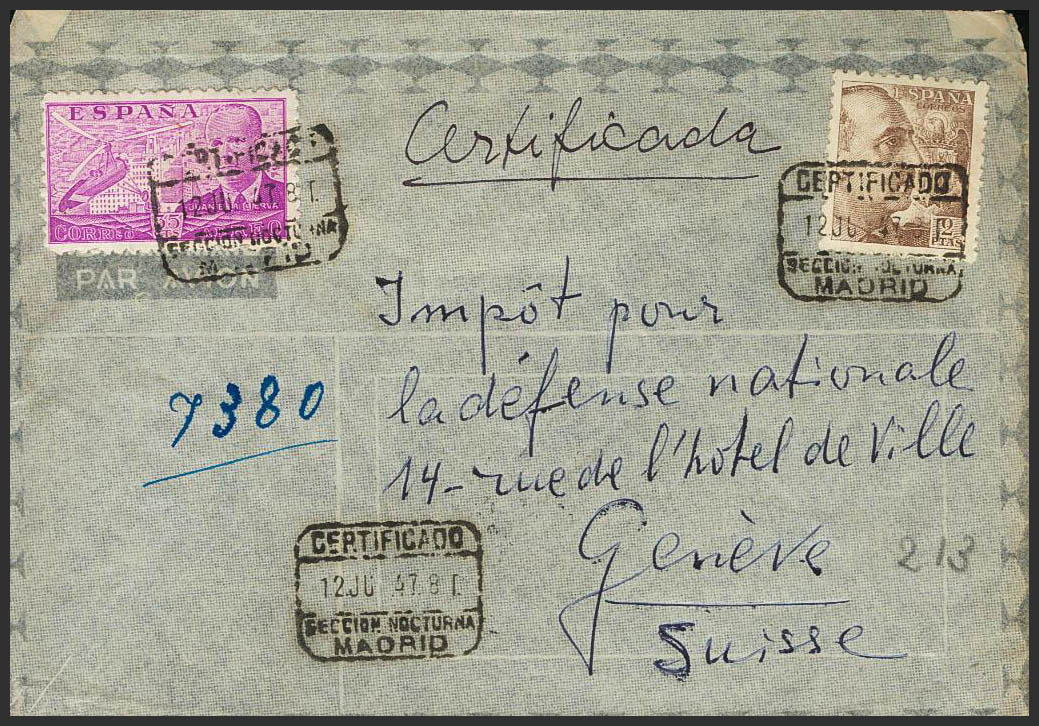 ESPAÑA
CORREO
25
JUAN DE LA CIERVA
PAR AVION
Certificada
ESPAÑA
CORREOS
2
PTAS
CERTIFICADO
12 JU 47. 8 T.
SECCION NOCTURNA
MADRID
CERTIFICADO
12 JU 47
SECCION NOCTURNA
MADRID
Impôt pour
la défense nationale
14-rue de l'hôtel de Ville
Genève
Suisse
7380
213
CERTIFICADO
12 JU 47. 8 T.
SECCION NOCTURNA
MADRID